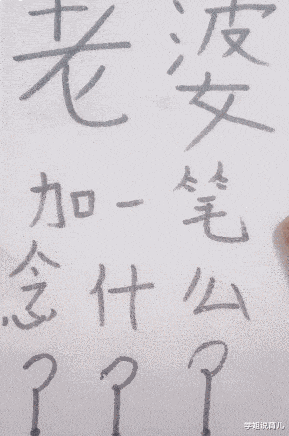 老婆
加一笔
念什么
???
学姐说育儿